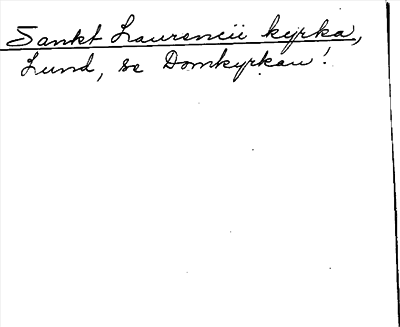 Sankt Laurencii kyrka,
Lund, se Domkyrkan!